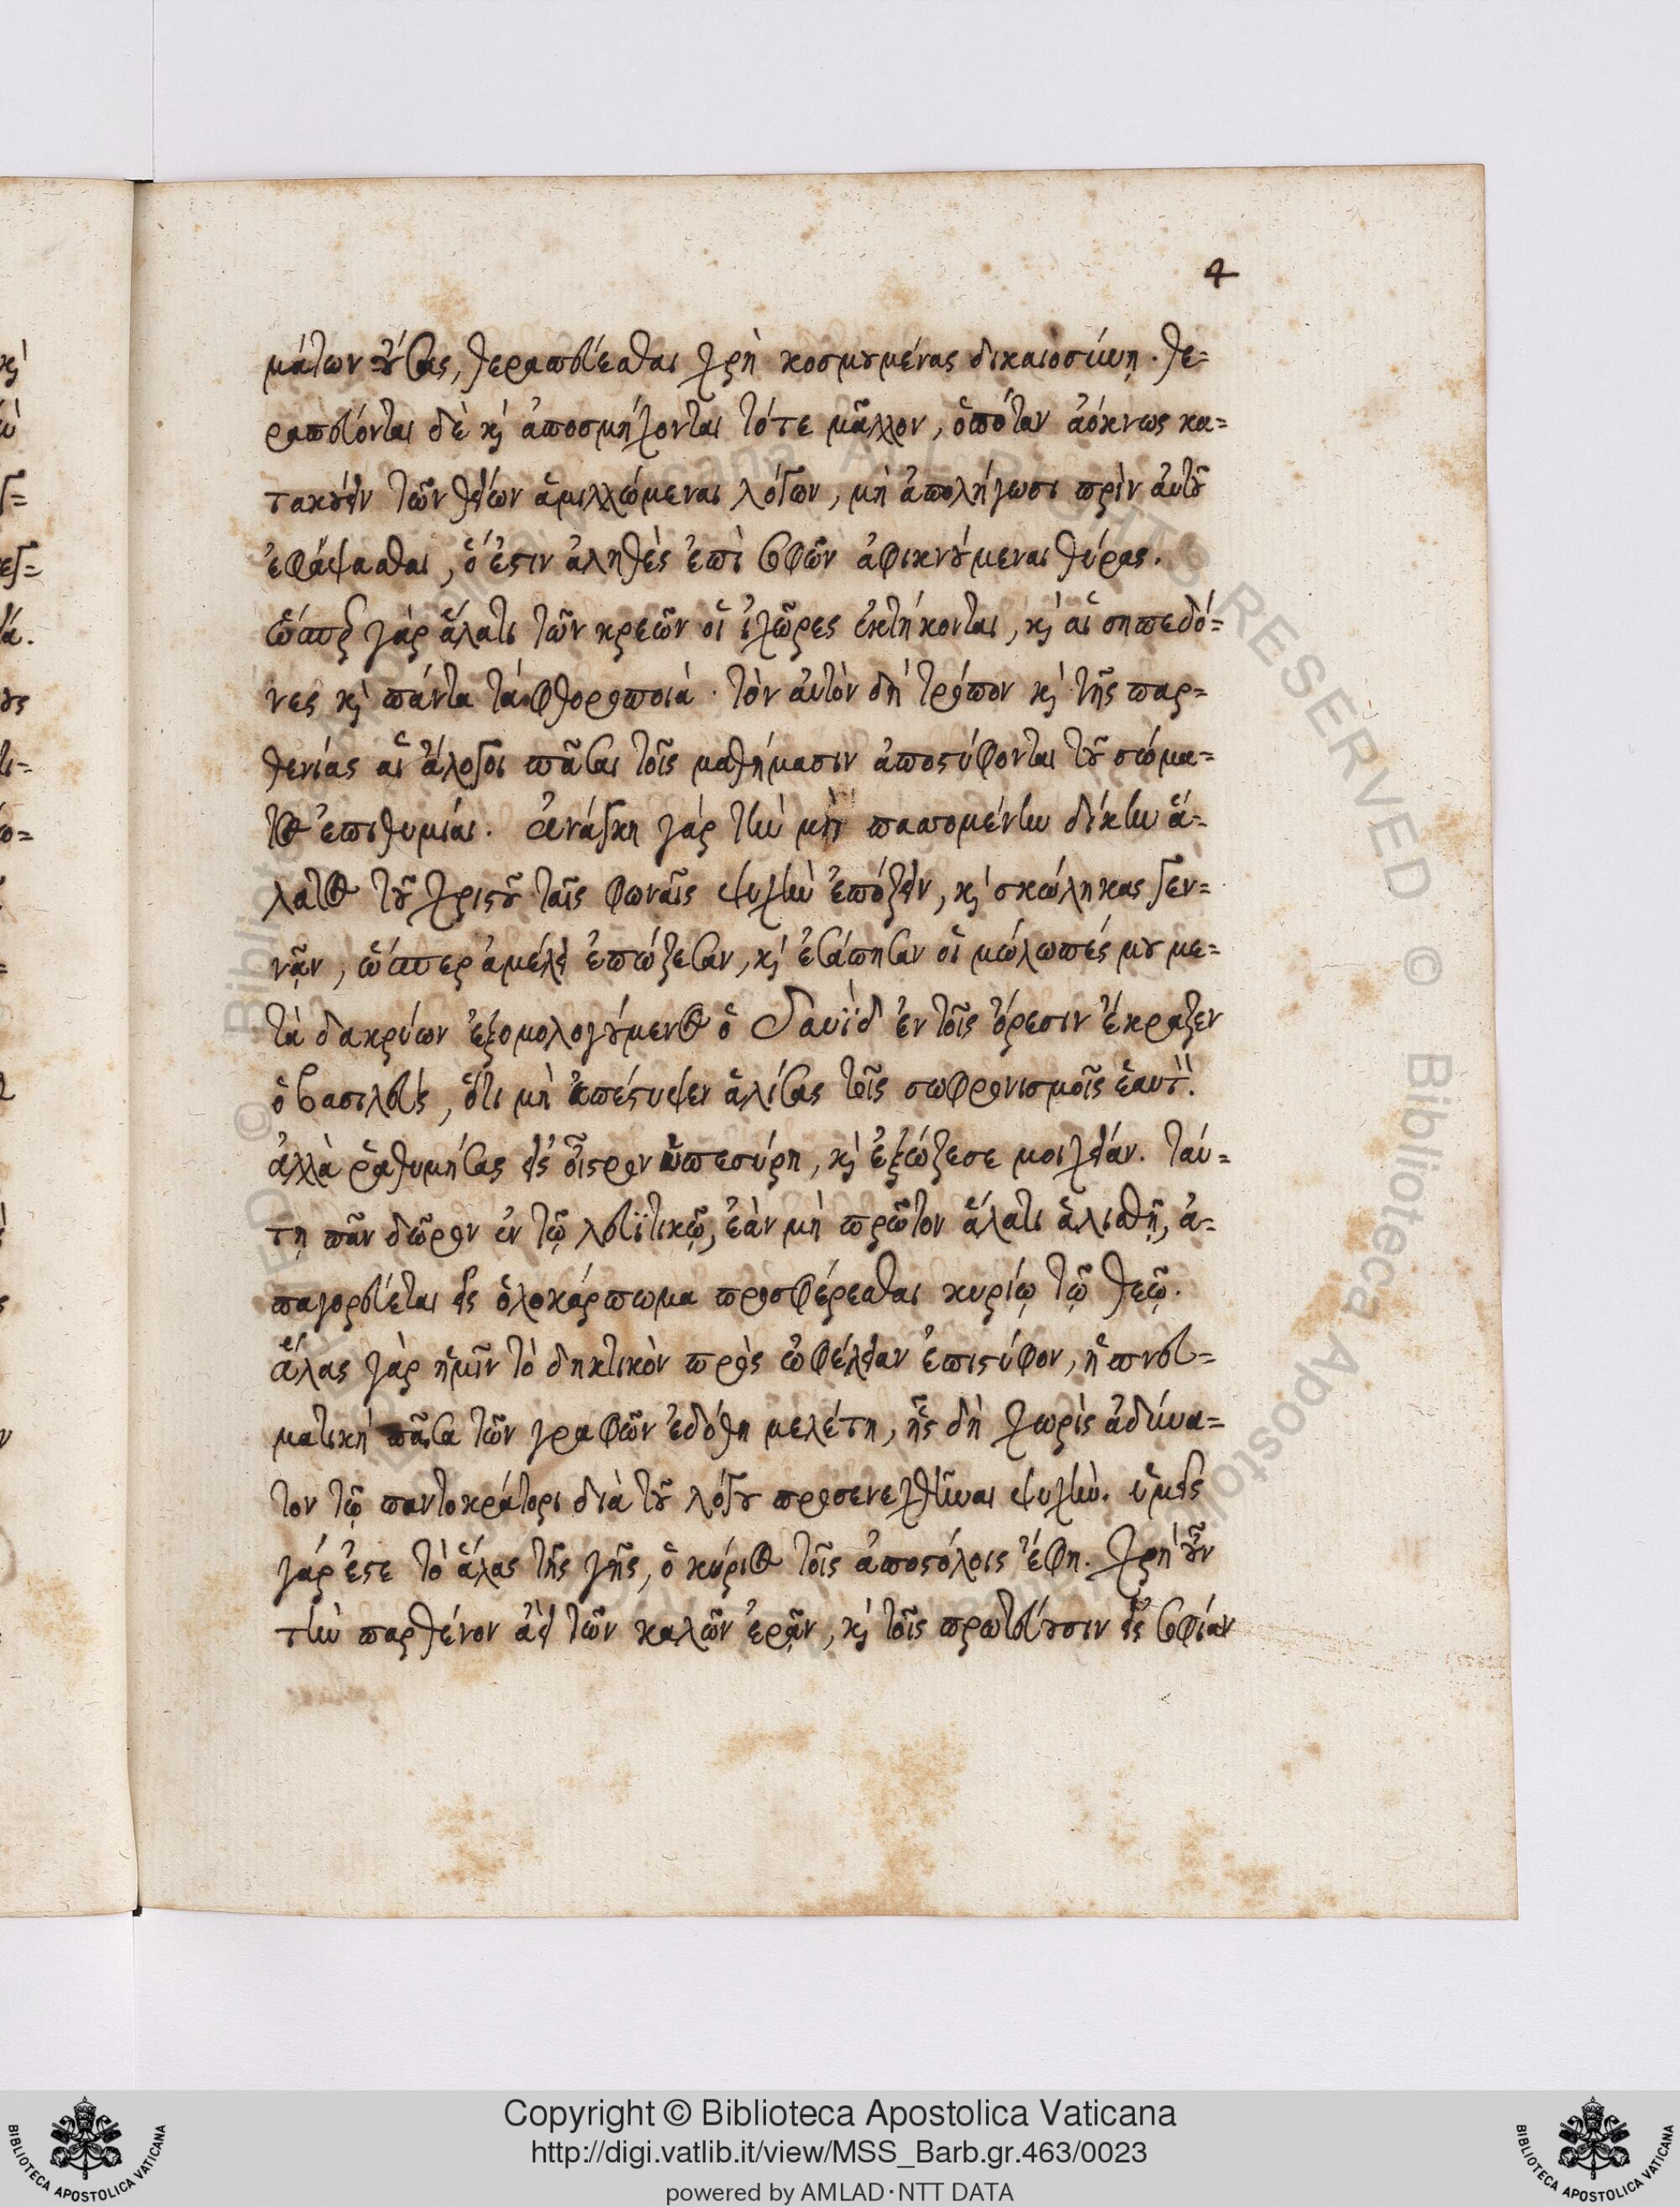 4
μάτων οὔσας, θεραπεύεσθαι χρὴ κοσμουμένας δικαιοσύνῃ. θε=
ραπεύονται δὲ καὶ ἀποσμήχονται τότε μᾶλλον, ὁπόταν ἀόκνως κα=
τακούειν τῶν θείων ἁμιλλώμεναι λόγων, μὴ ἀπολήγωσι πρὶν αὐτοῦ
ἐφάψασθαι, ὅ ἐστιν ἀληθὲς ἐπὶ σοφῶν ἀφικνούμεναι θύρας.
ὥσπερ γὰρ ἅλατι τῶν κρεῶν οἱ ἰχῶρες ἐκτήκονται, καὶ αἱ σηπεδό=
νες καὶ πάντα τὰ φθοροποιά. τὸν αὐτὸν δὴ τρόπον καὶ τῆς παρ=
θενίας αἱ ἄλογοι πᾶσαι τοῖς μαθήμασιν ἀποστύφονται τοῦ σώμα=
τος ἐπιθυμίαι. ἀνάγκη γάρ τὴν μὴ πασσομένην δίκην ἅ=
λατος τοῦ χριστοῦ ταῖς φωναῖς ψυχὴν ἐπόζειν, καὶ σκώληκας γεν=
νᾷν, ὥσπερ ἀμέλει ἐπώζεσαν, καὶ ἐσάπησαν οἱ μώλωπές μου με=
τὰ δακρύων ἐξομολογούμενος ὁ Δαυῒδ ἐν τοῖς ὄρεσιν ἔκραζεν
ὁ βασιλεύς, ὅτι μὴ ἀπέστυψεν ἁλίσας τοῖς σωφρονισμοῖς ἑαυτ.
ἀλλὰ ῥαθυμήσας εἰς οἶστρον ὑπεσύρη, καὶ ἐξώζεσε μοιχείαν. ταύ=
τῃ πᾶν δῶρον ἐν τῷ λευϊτικῷ, ἐὰν μὴ πρῶτον ἅλατι ἁλισθῇ, ἀ=
παγορεύεται εἰς ὁλοκάρπωμα προσφέρεσθαι κυρίῳ τῷ θεῷ.
ἅλας γὰρ ἡμῖν τὸ δηκτικὸν πρὸς ὠφέλειαν ἐπιστύφον, ἡ πνευ=
ματικὴ πᾶσα τῶν γραφῶν ἐδόθη μελέτη, ἧς δὴ χωρὶς ἀδύνα=
τον τῷ παντοκράτορι διὰ τοῦ λόγου προσενεχθῆναι ψυχὴν. ὑμεῖς
γάρ ἐστε τὸ ἅλας τῆς γῆς, ὁ κύριος τοῖς ἀποστόλοις ἔφη. χρὴ οὖν
τὴν παρθένον ἀεὶ τῶν καλῶν ἐρᾷν, καὶ τοῖς πρωτεύουσιν εἰς σοφίαν
Copyright © Biblioteca Apostolica Vaticana
http://digi.vatlib.it/view/MSS_Barb.gr.463/0023
powered by AMLAD·NTT DATA